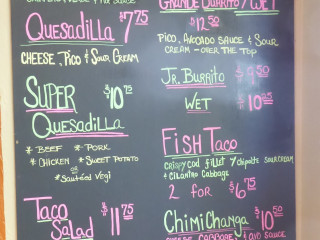 Quesadilla $7 75
CHEESE, Pico & SOUR CREAM
SUPER $10 75
Quesadilla
* BEEF * Pork
* CHICKEN * SWEET POTATO
OR
* Sautéed Vegi
Taco
SaLad $11 75
GRANDE BURRITO / WET
$12 50
PICO, AVOCADO SAUCE & SOUR
CREAM - OVER THE TOP
JR. BURRITO $9 50
WET $10 25
FISH TACO
CRISPY COD FILLET / chipotle SOUR CREAM
& CILANTRO CABBAGE
2 FOR $6 75
CHIMICHANGA $10 50
CHEESE, CABBAGE & AVO SAUCE